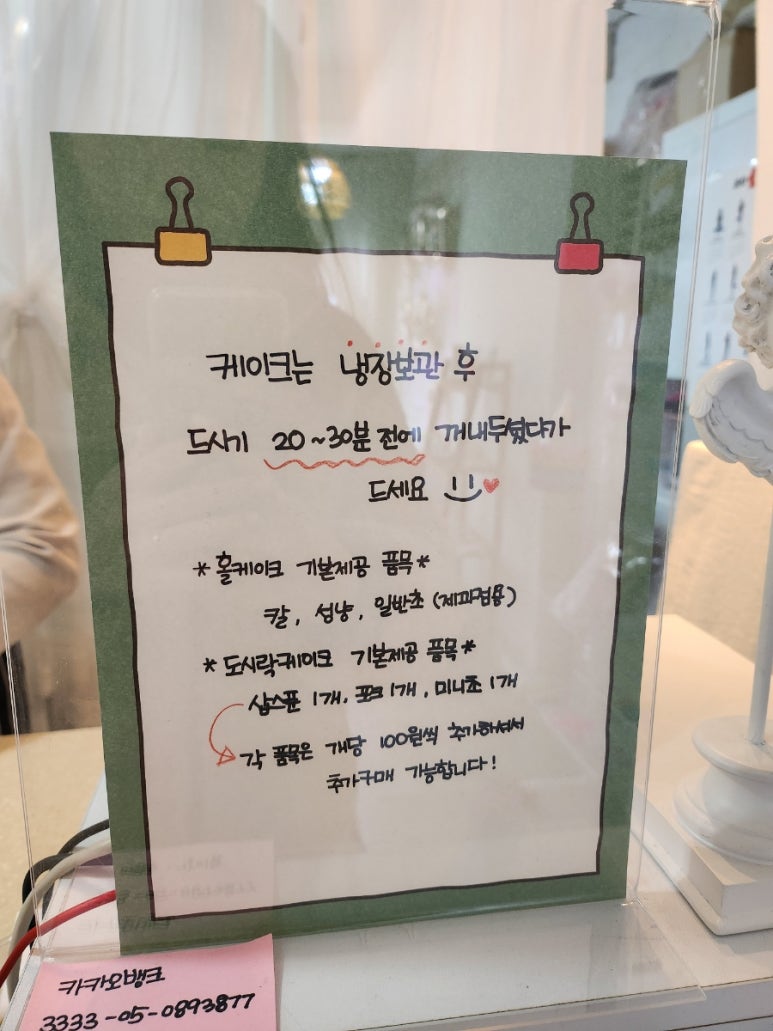 케이크는 냉장보관 후
드시기 20~30분 전에 꺼내두셨다가
드세요
*홀케이크 기본제공 품목*
칼, 성냥, 일반초 (제과점용)
*도시락케이크 기본제공 품목*
삽스푼 1개, 포크 1개, 미니초 1개
각 품목은 개당 100원씩 추가하셔서
추가구매 가능합니다!
카카오뱅크
3333-05-0893877